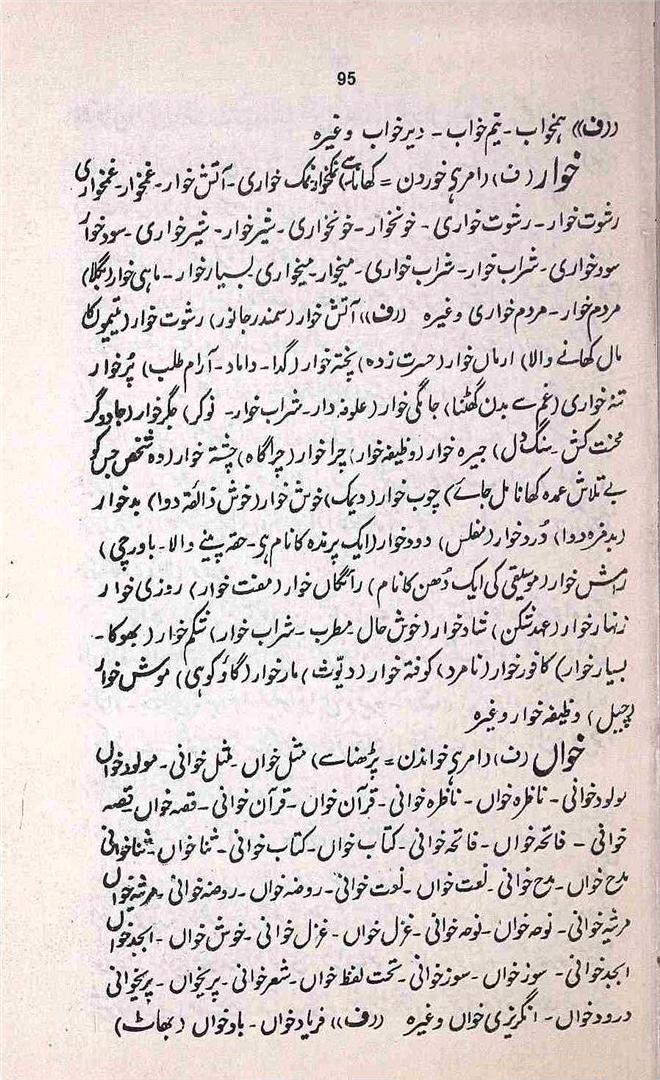 95
((ف)) ہمخواب۔ نیم خواب۔ دیر خواب وغیرہ
خوار (ف) (امر ہی خوردن = کھانا سے) نمکخوار نمک خواری۔ آتش خوار۔ غمخوار۔ غمخواری
رشوت خوار۔ رشوت خواری۔ خونخوار۔ خونخواری۔ شیر خوار۔ شیر خواری۔ سود خوار
سود خواری۔ شراب خوار۔ شراب خواری۔ میخوار۔ میخواری بسیار خوار۔ ماہی خوار (بگلا)
مردم خوار۔ مردم خواری وغیرہ ((ف)) آتش خوار (سمندر جانور) رشوت خوار (یتیموں کا
مال کھانے والا) ارماں خوار (حسرت زدہ) پختہ خوار (گدا۔ داماد۔ آرام طلب) پُر خوار
تنہ خواری (غم سے بدن گھٹنا) جامگی خوار (علوفہ دار۔ شراب خوار۔ نوکر) جگر خوار (جادوگر
محنت کش۔ سنگ دل) جیرہ خوار (وظیفہ خوار) چرا خوار (چراگاہ) چشتہ خوار (وہ شخص جس کو
بے تلاش عمدہ کھانا مل جائے) چوب خوار (دیمک) خوش خوار (خوش ذائقہ دوا) بد خوار
(بدمزہ دوا) دُرد خوار (مفلس) دود خوار (ایک پرندہ کا نام ہی۔ حقہ پینے والا۔ باورچی)
رامش خوار (موسیقی کی ایک دُھن کا نام) رائگاں خوار (مفت خوار) روزی خوار
زنہار خوار (عہد شکن) شاد خوار (خوش حال۔ مطرب۔ شراب خوار) شکم خوار (بھوکا۔
بسیار خوار) کافور خوار (نامرد) کوفتہ خوار (دیوّث) مار خوار (گاؤ کوہی) موش خوار
(چیل) وظیفہ خوار وغیرہ
خواں (ف) (امر ہی خواندن = پڑھنا سے) مثل خواں۔ مثل خوانی۔ مولود خواں
مولود خوانی۔ ناظرہ خواں۔ ناظرہ خوانی۔ قرآن خواں۔ قرآن خوانی۔ قصہ خواں۔ قصہ
خوانی۔ فاتحہ خواں۔ فاتحہ خوانی۔ کتاب خواں۔ کتاب خوانی۔ ثنا خواں۔ ثنا خوانی
مدح خواں۔ مدح خوانی۔ نعت خواں۔ نعت خوانی۔ روضہ خواں۔ روضہ خوانی۔ مرثیہ خواں
مرثیہ خوانی۔ نوحہ خواں۔ نوحہ خوانی۔ غزل خواں۔ غزل خوانی۔ خوش خواں۔ ابجد خواں
ابجد خوانی۔ سوز خواں۔ سوز خوانی۔ تحت لفظ خواں۔ شعر خوانی۔ پریخواں۔ پریخوانی
درود خواں۔ انگریزی خواں وغیرہ ((ف)) فریاد خواں۔ باد خواں (بھاٹ)